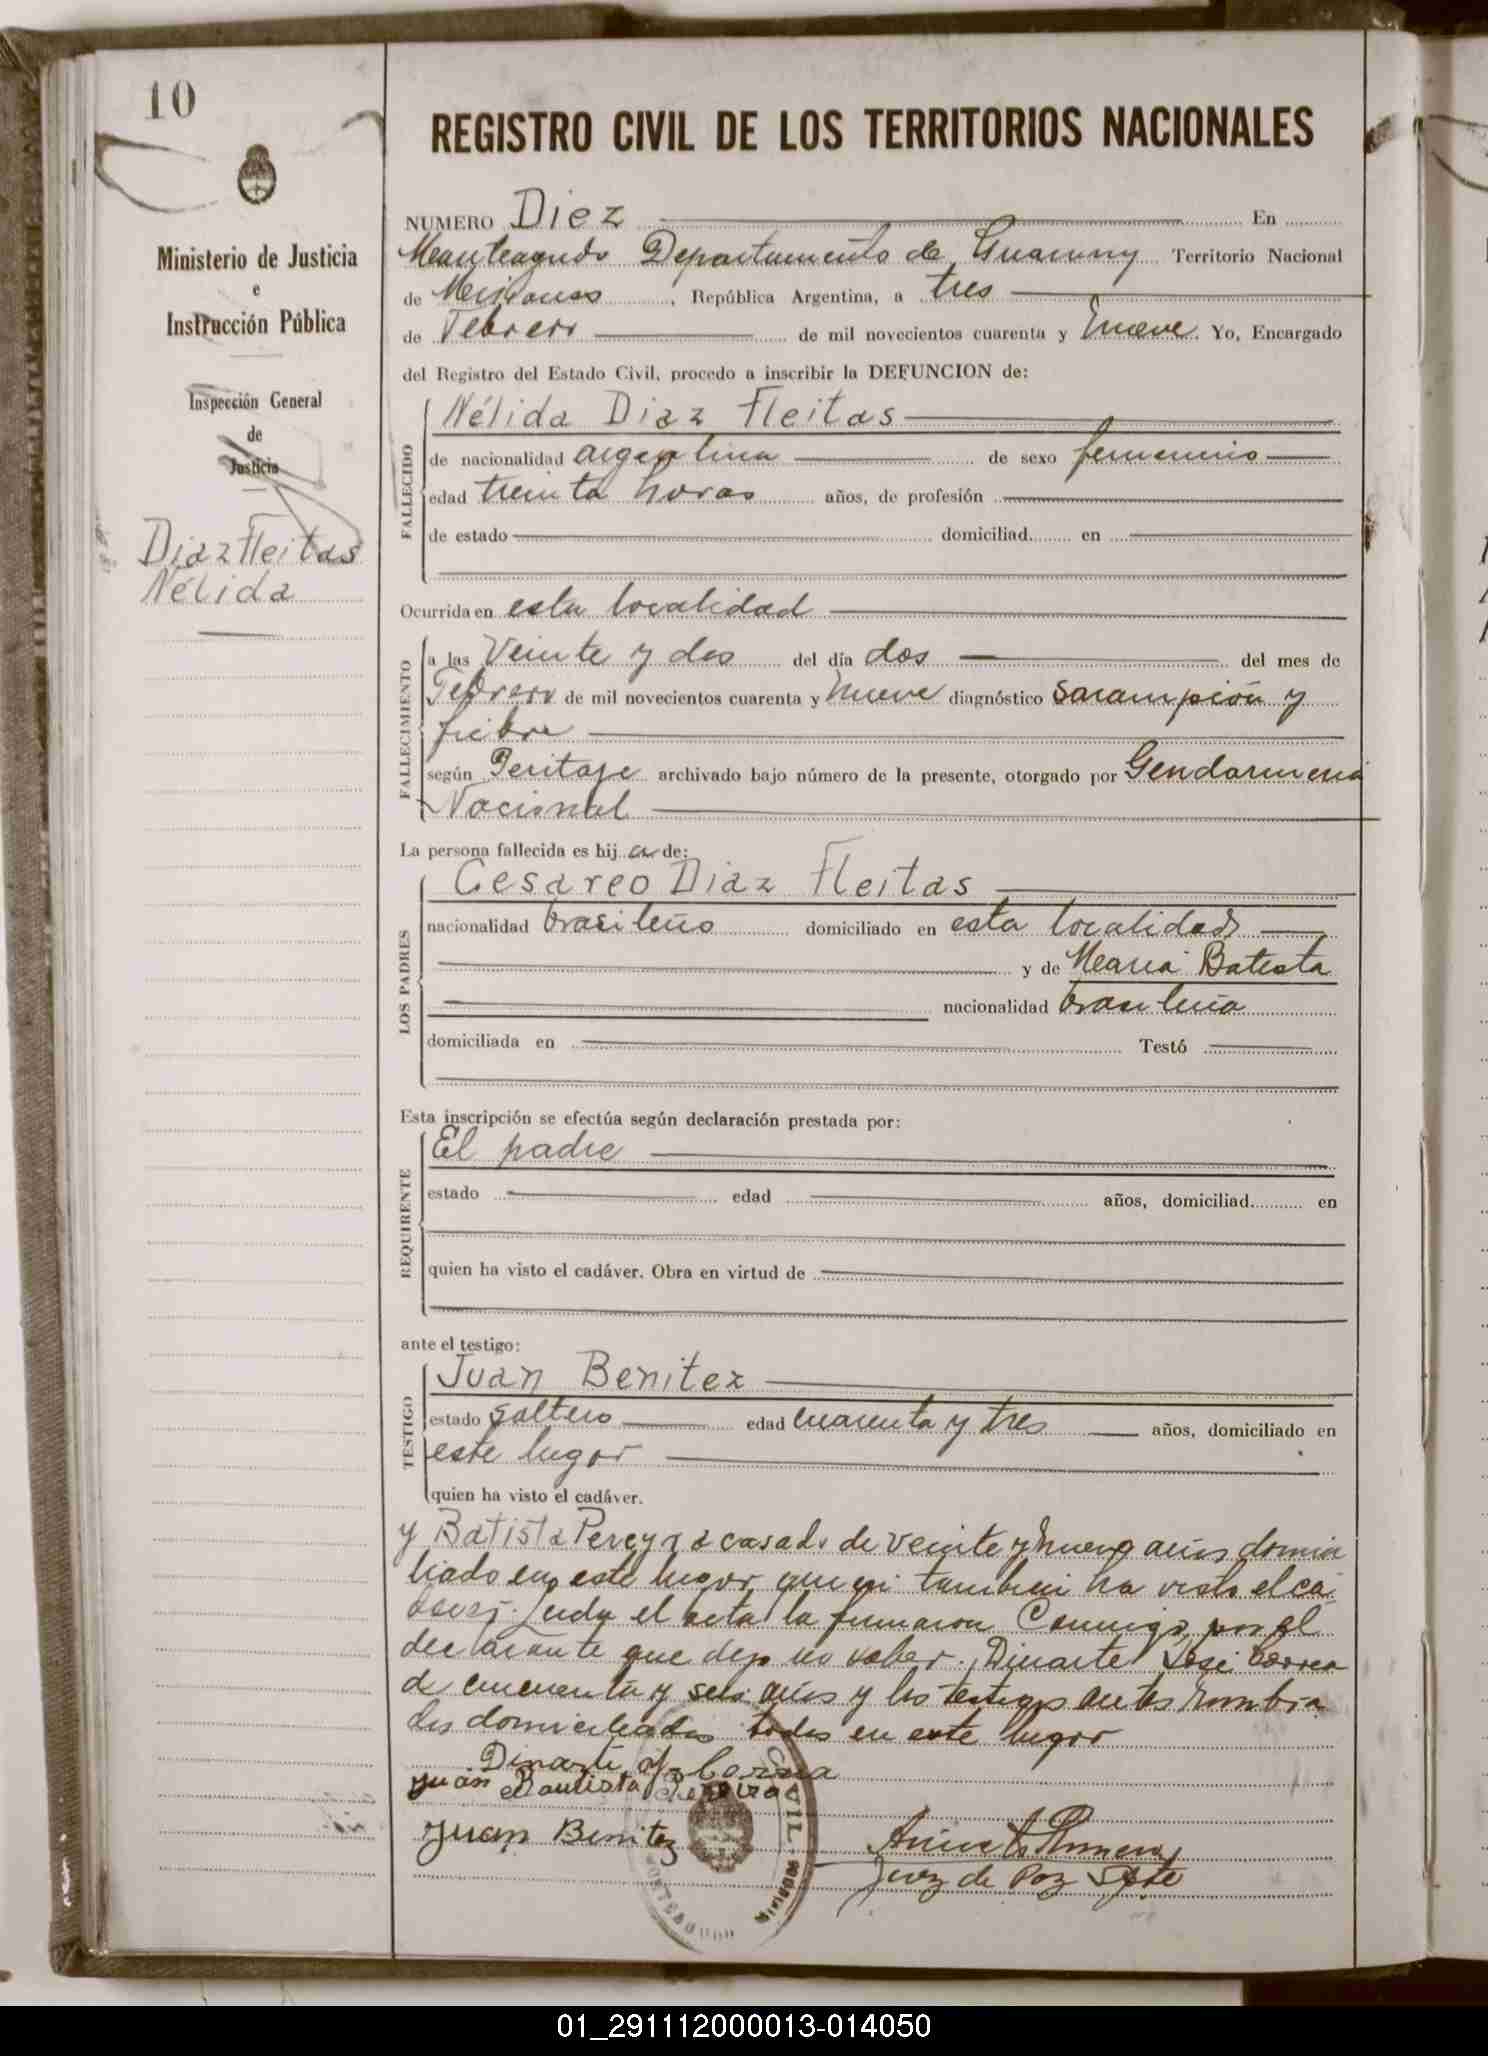 10
Ministerio de Justicia
e
Instrucción Pública
Inspección General
de
Justicia
Diaz Fleitas
Nélida
REGISTRO CIVIL DE LOS TERRITORIOS NACIONALES
NUMERO Diez En
Monteagudo Departamento de Guarany Territorio Nacional
de Misiones, República Argentina, a tres
de Febrero de mil novecientos cuarenta y nueve. Yo, Encargado
del Registro del Estado Civil, procedo a inscribir la DEFUNCION de:
FALLECIDO
Nélida Diaz Fleitas
de nacionalidad argentina de sexo femenino
edad treinta horas años, de profesión
de estado domiciliad en
Ocurrida en esta localidad
FALLECIMIENTO
a las Veinte y dos del día dos del mes de
Febrero de mil novecientos cuarenta y nueve diagnóstico sarampión y
fiebre
según Peritaje archivado bajo número de la presente, otorgado por Gendarmeria
Nacional
La persona fallecida es hij a de:
LOS PADRES
Cesareo Diaz Fleitas
nacionalidad brasileño domiciliado en esta localidad
y de Maria Batista
nacionalidad brasileña
domiciliada en Testó
Esta inscripción se efectúa según declaración prestada por:
REQUIRENTE
El padre
estado edad años, domiciliad en
quien ha visto el cadáver. Obra en virtud de
ante el testigo:
TESTIGO
Juan Benitez
estado soltero edad cuarenta y tres años, domiciliado en
este lugar
quien ha visto el cadáver.
y Batista Pereyra casado de veinte y nueve años domici
liado en este lugar quien tambien ha visto el ca
daver. Leida el acta la firmaron Conmigo, por el
declarante que dijo no saber. Dinarte José Correa
de cincuenta y seis años y los testigos antes nombra
dos domiciliados todos en este lugar
Dinarte J. Correa
Juan Bautista Pereira
Juan Benitez
CIVIL
MONTEAGUDO
Misiones
Romero
Juez de Paz Spte
01_291112000013-014050